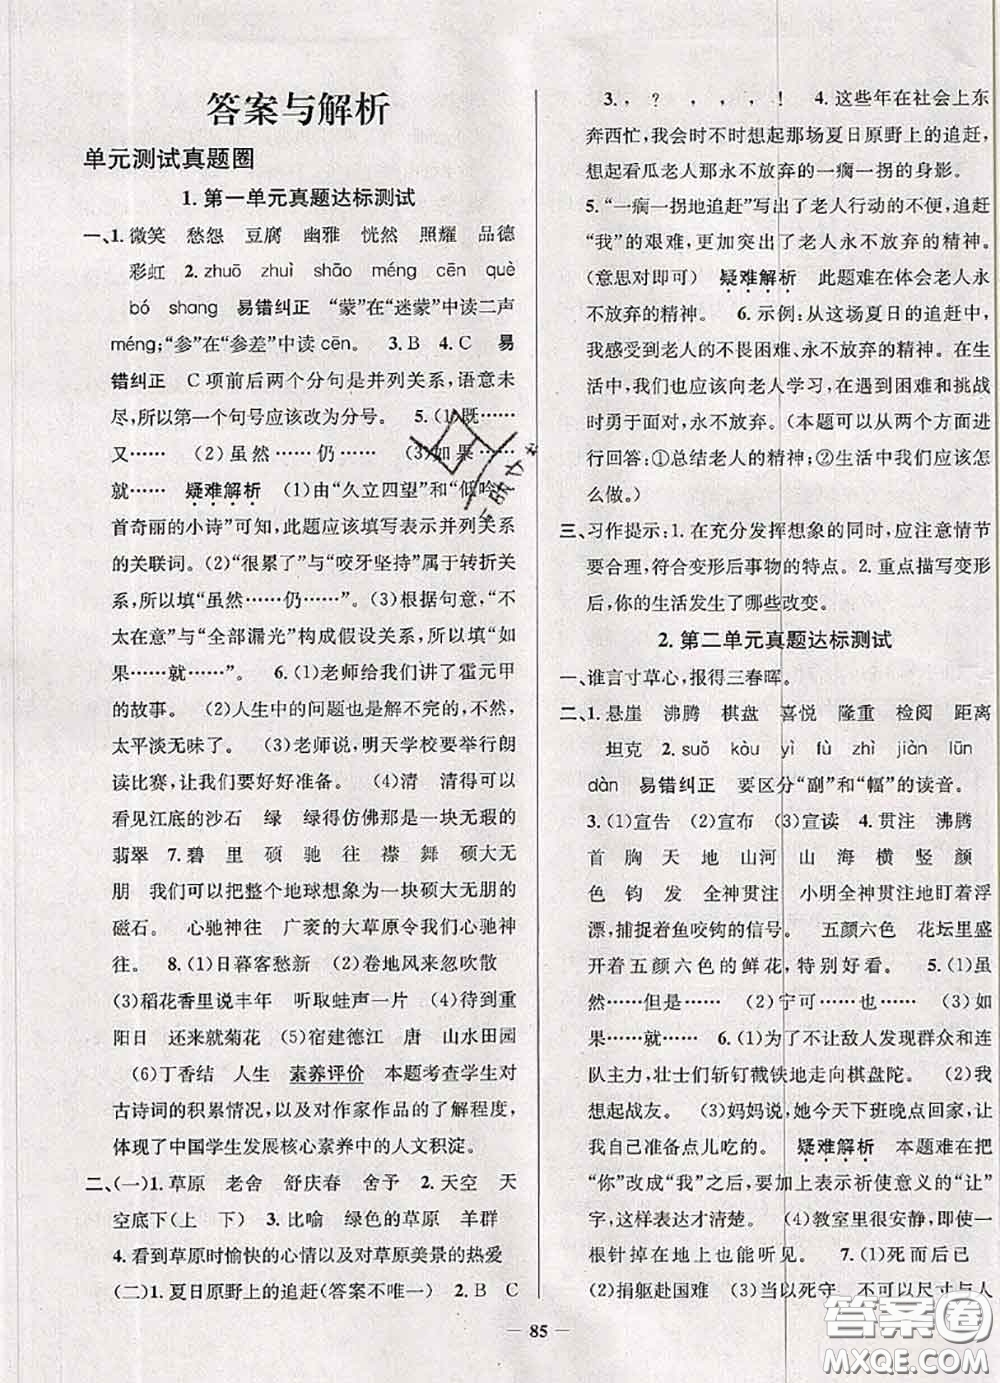 答案与解析
单元测试真题圈
1. 第一单元真题达标测试
一、1.微笑 愁怨 豆腐 幽雅 恍然 照耀 品德
彩虹 2. zhuō zhuì shāo méng cēn què
bó shang 易错纠正 “蒙”在“迷蒙”中读二声
méng;“参”在“参差”中读cēn。 3. B 4. C 易
错纠正 C项前后两个分句是并列关系,语意未
尽,所以第一个句号应该改为分号。 5. (1)既……
又…… (2)虽然……仍…… (3)如果……
就…… 疑难解析 (1)由“久立四望”和“低吟
首奇丽的小诗”可知,此题应该填写表示并列关系
的关联词。(2)“很累了”与“咬牙坚持”属于转折关
系,所以填“虽然……仍……”。(3)根据句意,“不
太在意”与“全部漏光”构成假设关系,所以填“如
果……就……”。 6. (1)老师给我们讲了霍元甲
的故事。 (2)人生中的问题也是解不完的,不然,
太平淡无味了。 (3)老师说,明天学校要举行朗
读比赛,让我们要好好准备。 (4)清 清得可以
看见江底的沙石 绿 绿得仿佛那是一块无瑕的
翡翠 7. 碧 里 硕 驰 往 襟 舞 硕大无
朋 我们可以把整个地球想象为一块硕大无朋的
磁石。 心驰神往 广袤的大草原令我们心驰神
往。 8. (1)日暮客愁新 (2)卷地风来忽吹散
(3)稻花香里说丰年 听取蛙声一片 (4)待到重
阳日 还来就菊花 (5)宿建德江 唐 山水田园
(6)丁香结 人生 素养评价 本题考查学生对
古诗词的积累情况,以及对作家作品的了解程度,
体现了中国学生发展核心素养中的人文积淀。
二、(一)1. 草原 老舍 舒庆春 舍予 2. 天空 天
空底下(上 下) 3. 比喻 绿色的草原 羊群
4. 看到草原时愉快的心情以及对草原美景的热爱
(二)1. 夏日原野上的追赶(答案不唯一) 2. B C
3. , ? , , , ! 4. 这些年在社会上东
奔西忙,我会时不时想起那场夏日原野上的追赶,
想起看瓜老人与他永不放弃的一瘸一拐的身影。
5. “一瘸一拐地追赶”写出了老人行动的不便,追赶
“我”的艰难,更加突出了老人永不放弃的精神。
(意思对即可) 疑难解析 此题难在体会老人永
不放弃的精神。 6. 示例:从这场夏日的追赶中,
我感受到老人的不畏困难、永不放弃的精神。在生
活中,我们也应该向老人学习,在遇到困难和挑战
时勇于面对,永不放弃。(本题可以从两个方面进
行回答:①总结老人的精神;②生活中我们应该怎
么做。)
三、习作提示:1. 在充分发挥想象的同时,应注意情节
要合理,符合变形后事物的特点。2. 重点描写变形
后,你的生活发生了哪些改变。
2. 第二单元真题达标测试
一、谁言寸草心,报得三春晖。
二、1. 悬崖 沸腾 棋盘 喜悦 隆重 检阅 距离
坦克 2. suō kòu yì fù zhì jiàn lūn
dàn 易错纠正 要区分“副”和“幅”的读音。
3. (1)宣告 (2)宣布 (3)宣读 4. 贯注 沸腾
首 胸 天 地 山河 山 海 横 竖 颜
色 钧 发 全神贯注 小明全神贯注地盯着浮
漂,捕捉着鱼咬钩的信号。 五颜六色 花坛里盛
开着五颜六色的鲜花,特别好看。 5. (1)虽
然……但是…… (2)宁可……也…… (3)如
果……就…… 6. (1)为了不让敌人发现群众和连
队主力,壮士们斩钉截铁地走向棋盘陀。 (2)我
想起战友。 (3)妈妈说,她今天下班晚点回家,让
我自己准备点儿吃的。 疑难解析 本题难在把
“你”改成“我”时,要加上表示祈使意义的“让”
字,这样表达才清楚。 (4)教室里很安静,即使一
根针掉在地上也能听见。 7. (1)死而后已
(2)捐躯赴国难 (3)当以死报国 不可以尺寸与人
85
答案圈
MXQE.COM